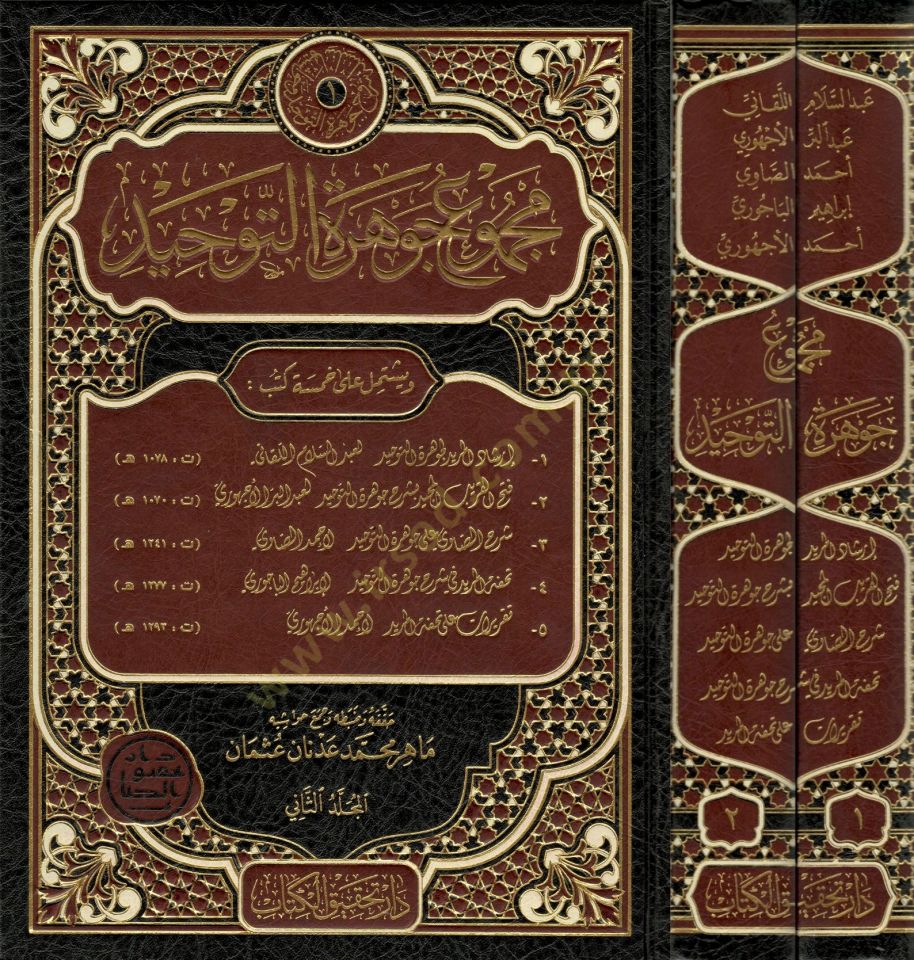 ١
مجموع جوهرة التوحيد
ويشتمل على خمسة كتب :
١- إرشاد المريد لجوهرة التوحيد لعبد السلام اللقاني (ت : ١٠٧٨ هـ)
٢- فتح القريب المجيد بشرح جوهرة التوحيد لعبد البر الأجهوري (ت : ١٠٧٠ هـ)
٣- شرح الصاوي على جوهرة التوحيد لأحمد الصاوي (ت : ١٢٤١ هـ)
٤- تحفة المريد في شرح جوهرة التوحيد لإبراهيم الباجوري (ت : ١٢٧٧ هـ)
٥- تقريرات على تحفة المريد لأحمد الأجهوري (ت : ١٢٩٣ هـ)
حققه وضبطه ووضع حواشيه
ماهر محمد عدنان عثمان
المجلد الثاني
دار تحقيق الكتاب
عبد السلام اللقاني
عبد البر الأجهوري
أحمد الصاوي
إبراهيم الباجوري
أحمد الأجهوري
مجموع
جوهرة التوحيد
إرشاد المريد لجوهرة التوحيد
فتح القريب المجيد بشرح جوهرة التوحيد
شرح الصاوي على جوهرة التوحيد
تحفة المريد في شرح جوهرة التوحيد
تقريرات على تحفة المريد
١ ٢
دار تحقيق الكتاب